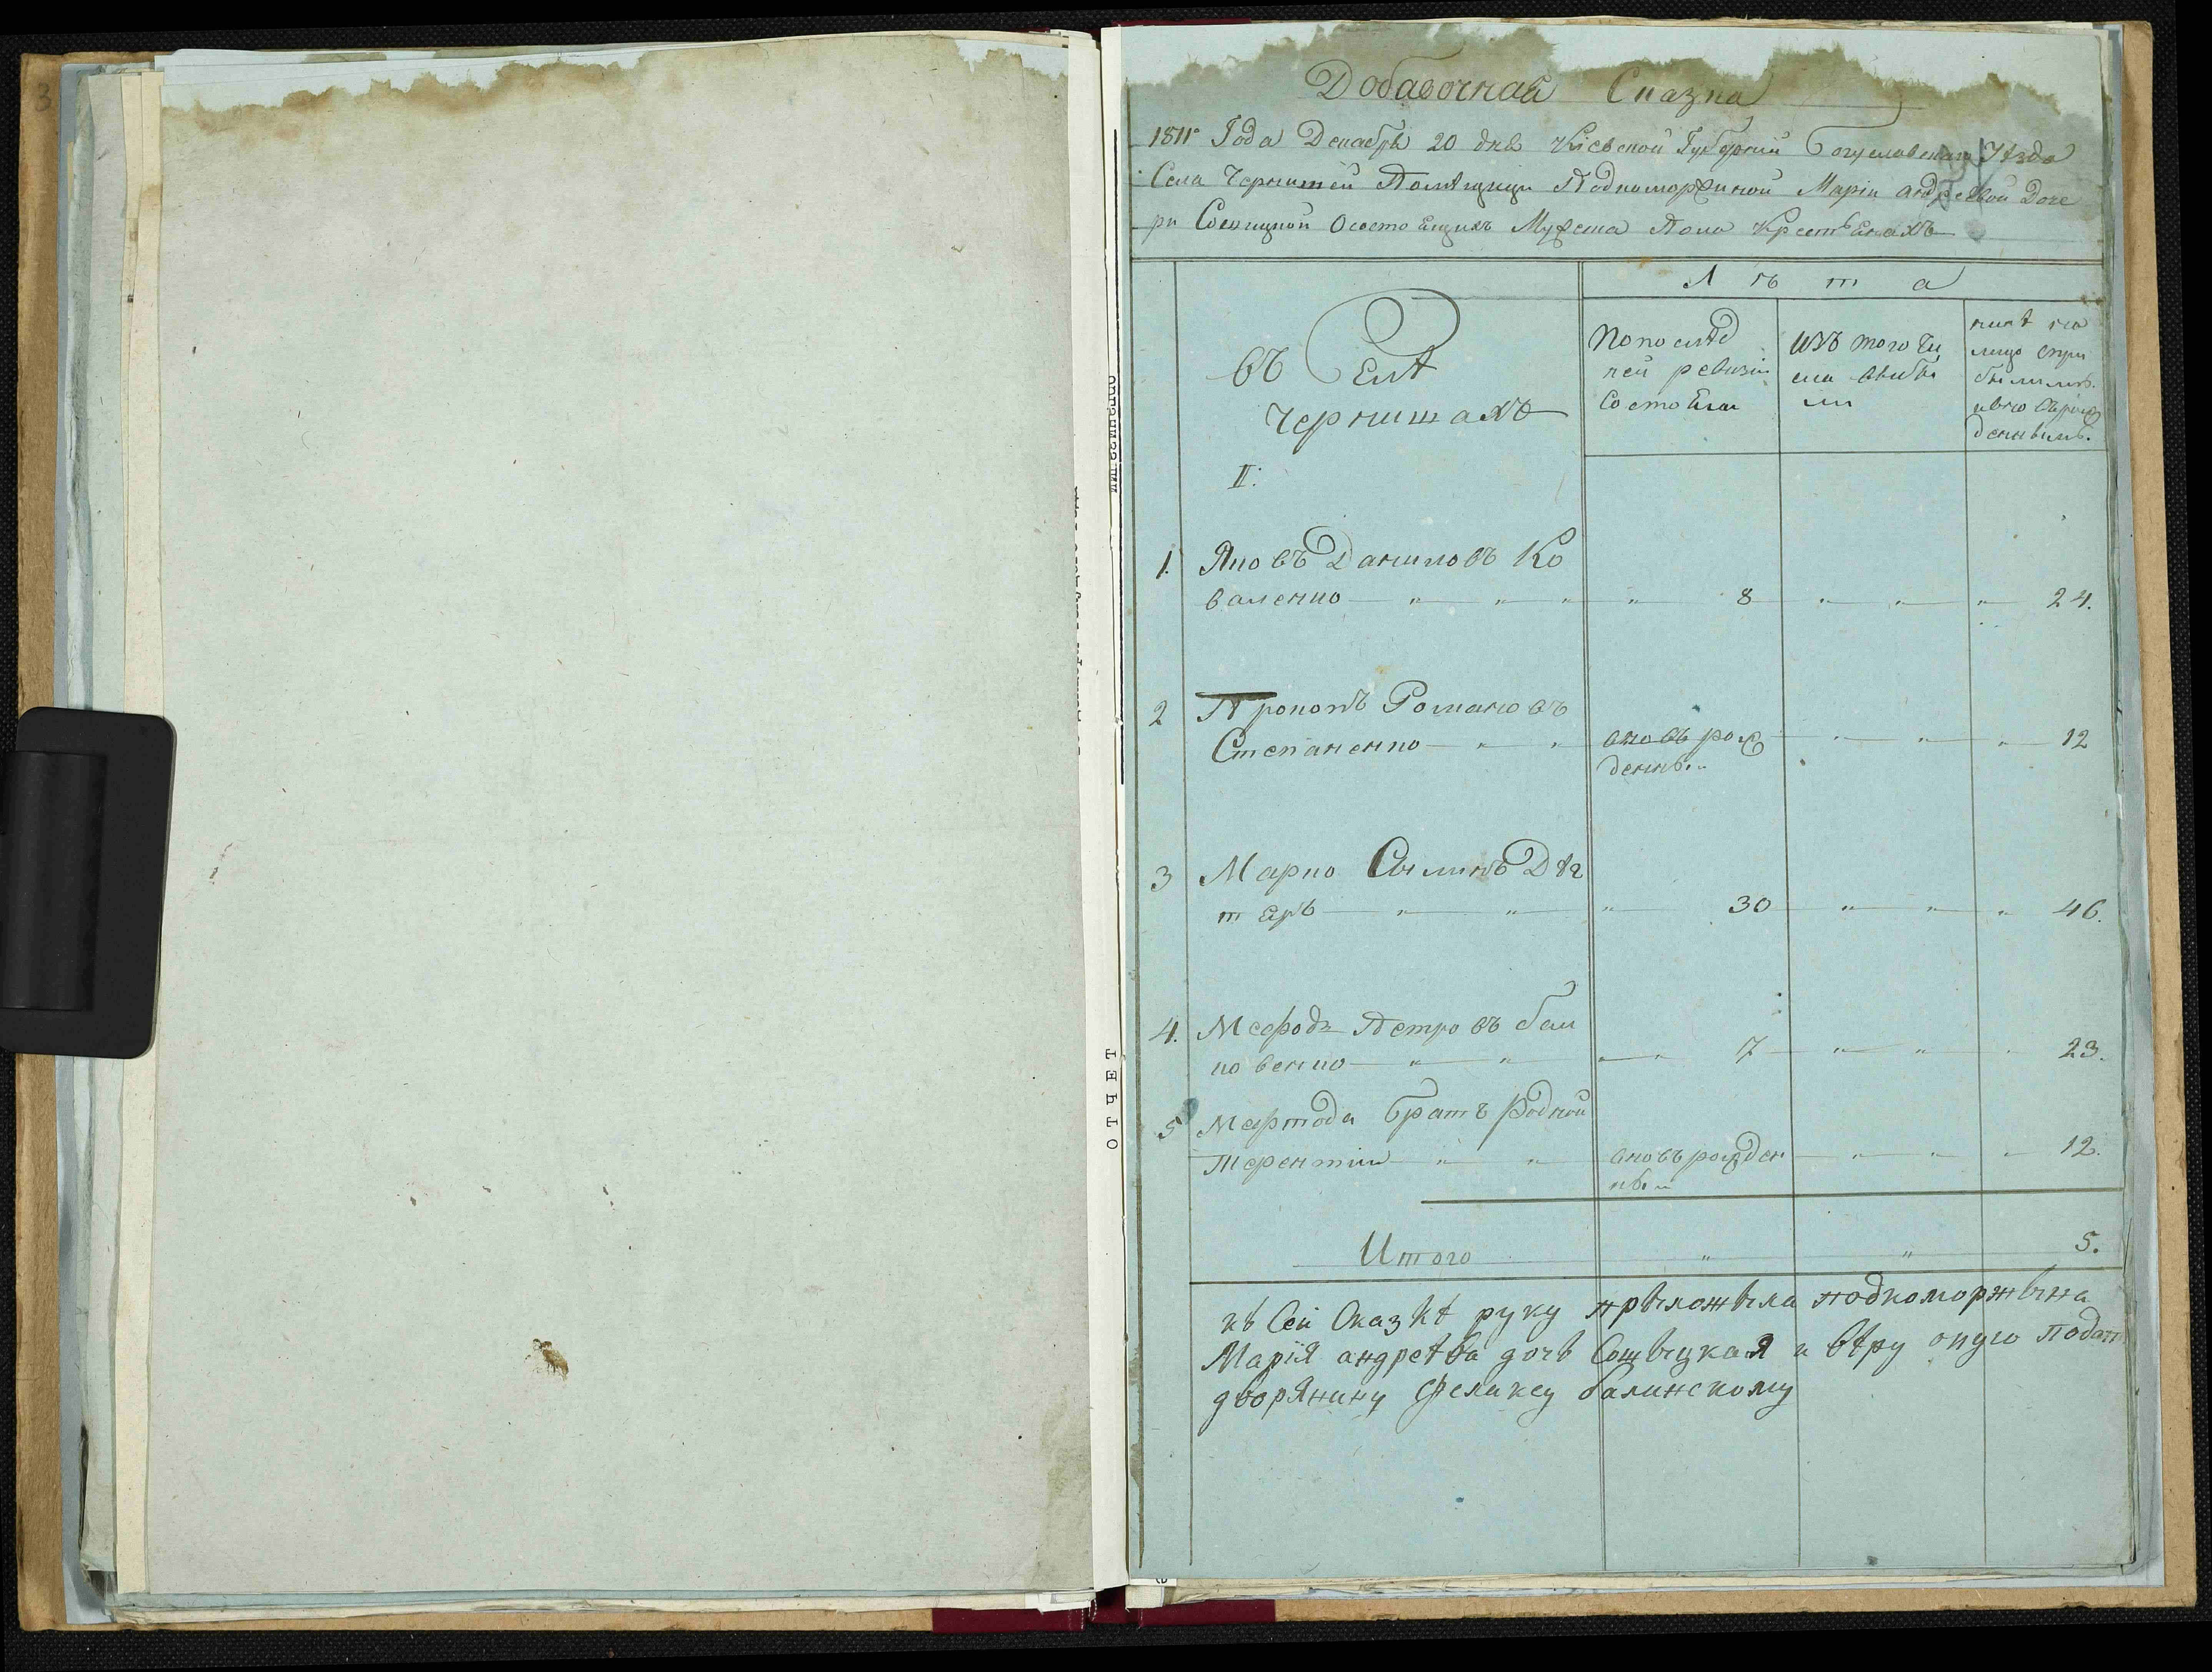 3
Добавочная Сказка
1811º Года Декабря 20 дня Кіевской Губерніи Богуславскаго Уезда
Села Чернишей Помѣщици Подкоморжиной Маріи андреевой Доче
ри Сосницкой Осостоящихъ Мужеска Пола Крестьянахъ
Лѣта
въ Селѣ
чернишахъ
По послѣд
ней ревизіи
состояли
изъ того чи
сла выбы
ли
нинѣ на
лицо
денными.
II:
1. Яковъ Даниловъ Ко
валенко — " — " — " — " 8 — " — " — " 24.
2 Прокопъ Романовъ
Степаненко — " — " вновь рож — " — " — " 12
денны "
3 Марко Сылинъ Дѣг
тярь — " — " — " 30 — " — " — " 46.
4. Мефодъ Петровъ бал
ковенко — " — " — " 7 — " — " — " 23.
5 Мефтода братъ Родной
Терентіи — " — " вновь рожден — " — " — " 12.
ны "
Итого " " 5.
къ сей сказкѣ руку прыложыла подкоморжына
Марія андреѣва дочь Сошыцкая и вѣру оную подат
дворянину Феликсу балинскому